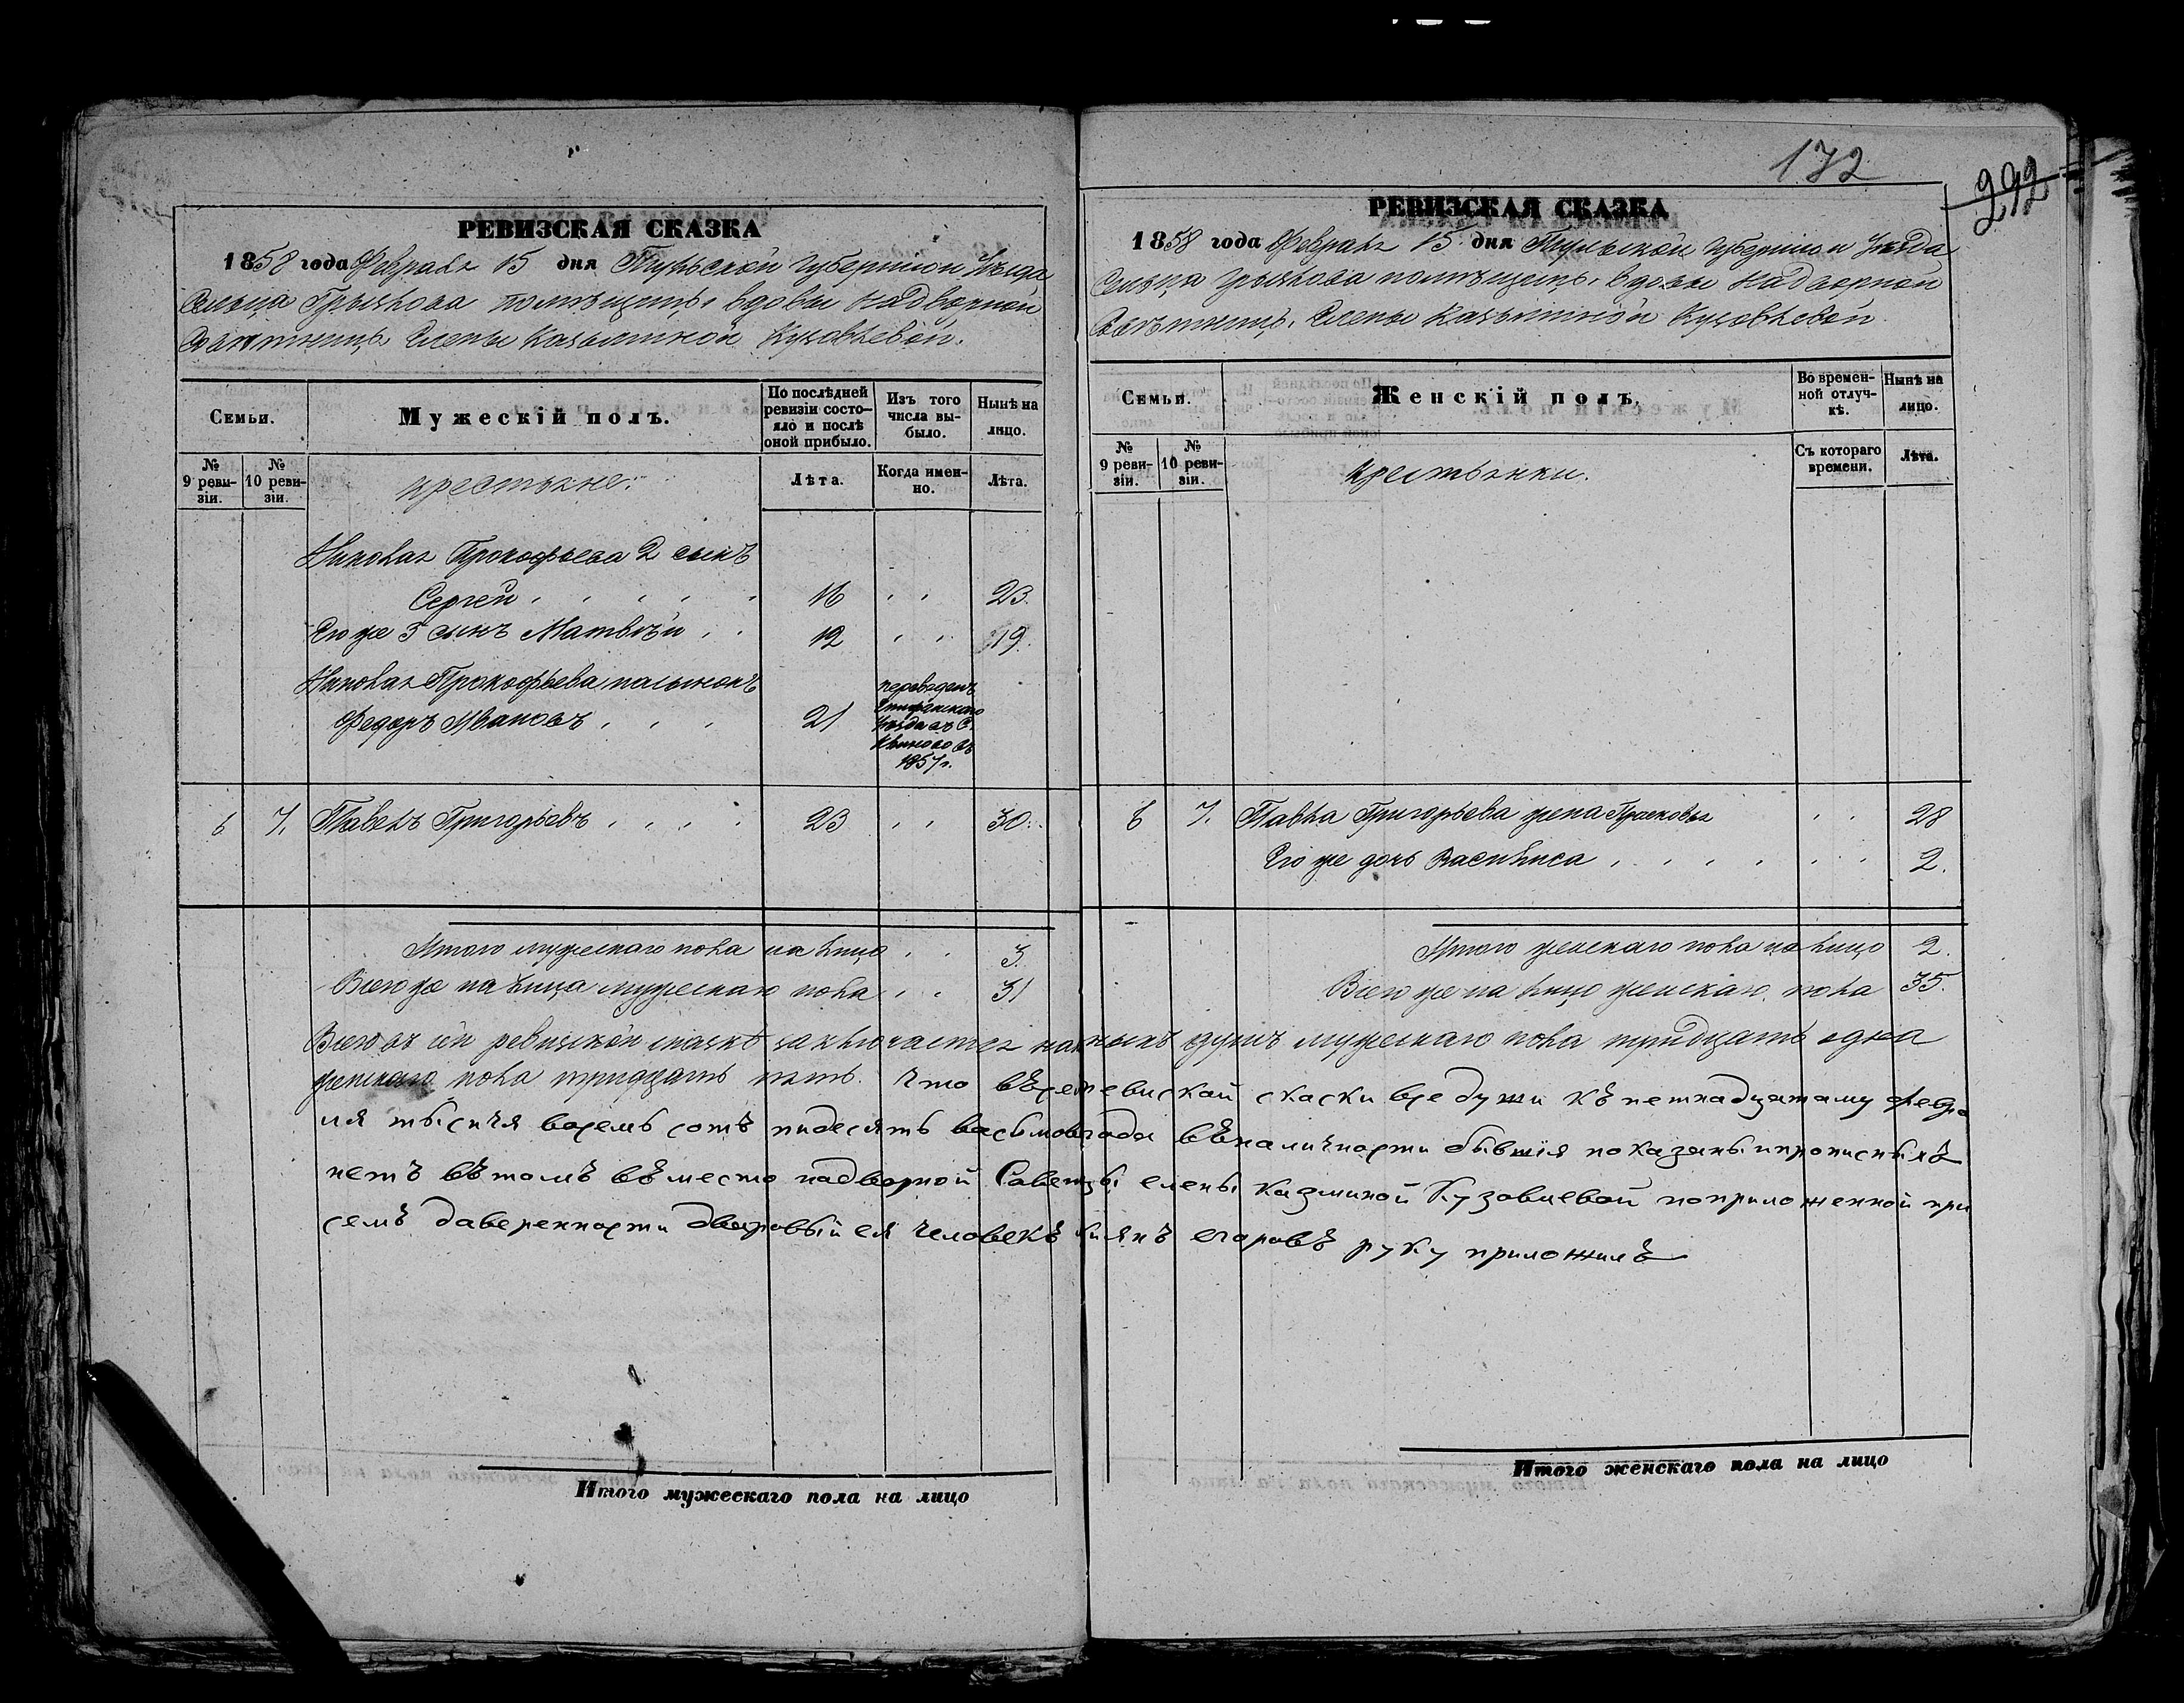 172
292
РЕВИЗСКАЯ СКАЗКА
1858 года Февраля 15 дня Тульской Губернiи и Уѣзда
Сельца Грызлова помѣщицы, вдовы надворной
Совѣтницы Елены Казьминой Кузовлевой.
Семьи.
Мужескiй полъ.
По послѣдней ревизiи состо-
яло и послѣ
оной прибыло.
Изъ того
числа вы-
было.
Нынѣ на
лицо.
№
9 реви-
зiи.
№
10 реви-
зiи.
крестьяне.
Лѣта.
Когда имен-
но.
Лѣта.
Николая Прокофьева 2 сынъ
Сергей 16 23.
Его же 3 сынъ Матвѣй 12 19.
Николая Прокофьева пасынокъ
Федоръ Ивановъ 21
переведенъ
Епифанскаго
Уѣзда въ С.
въ
1857 г.
6 7. Павелъ Григорьевъ 23 30.
Итого мужескаго пола на лицо 3.
Всего же на лицо мужескаго пола 31
РЕВИЗСКАЯ СКАЗКА
1858 года Февраля 15 дня Тульской Губернiи и Уѣзда
Сельца Грызлова помѣщицы, вдовы надворной
Совѣтницы, Елены Казьминой Кузовлевой.
Семьи.
Женскiй полъ.
Во времен-
ной отлуч-
кѣ.
Нынѣ на
лицо.
№
9 реви-
зiи.
№
10 реви-
зiи.
крестьянки.
Съ котораго
времени.
Лѣта.
6 7. Павла Григорьева жена Прасковья 28
Его же дочь Василиса 2.
Итого женскаго пола на лицо 2.
Всего же на лицо женскаго пола 35.
Всего въ сей ревизской сказкѣ заключается наличныхъ душъ мужескаго пола тридцать одна
женскаго пола тридцать пять. что въсей ревиской скаски все души къ петнадцатому февра
ля тысичя восемь сотъ пидесять васьмова года въналичности бывшiя показаны ипрописныхъ
нетъ вътомъ въместо надворной Саветцы елены казминой Кузовлевой поприложенной при
семъ даверенности дворовый ея человекъ егаровъ руку приложилъ
Итого мужескаго пола на лицо
Итого женскаго пола на лицо